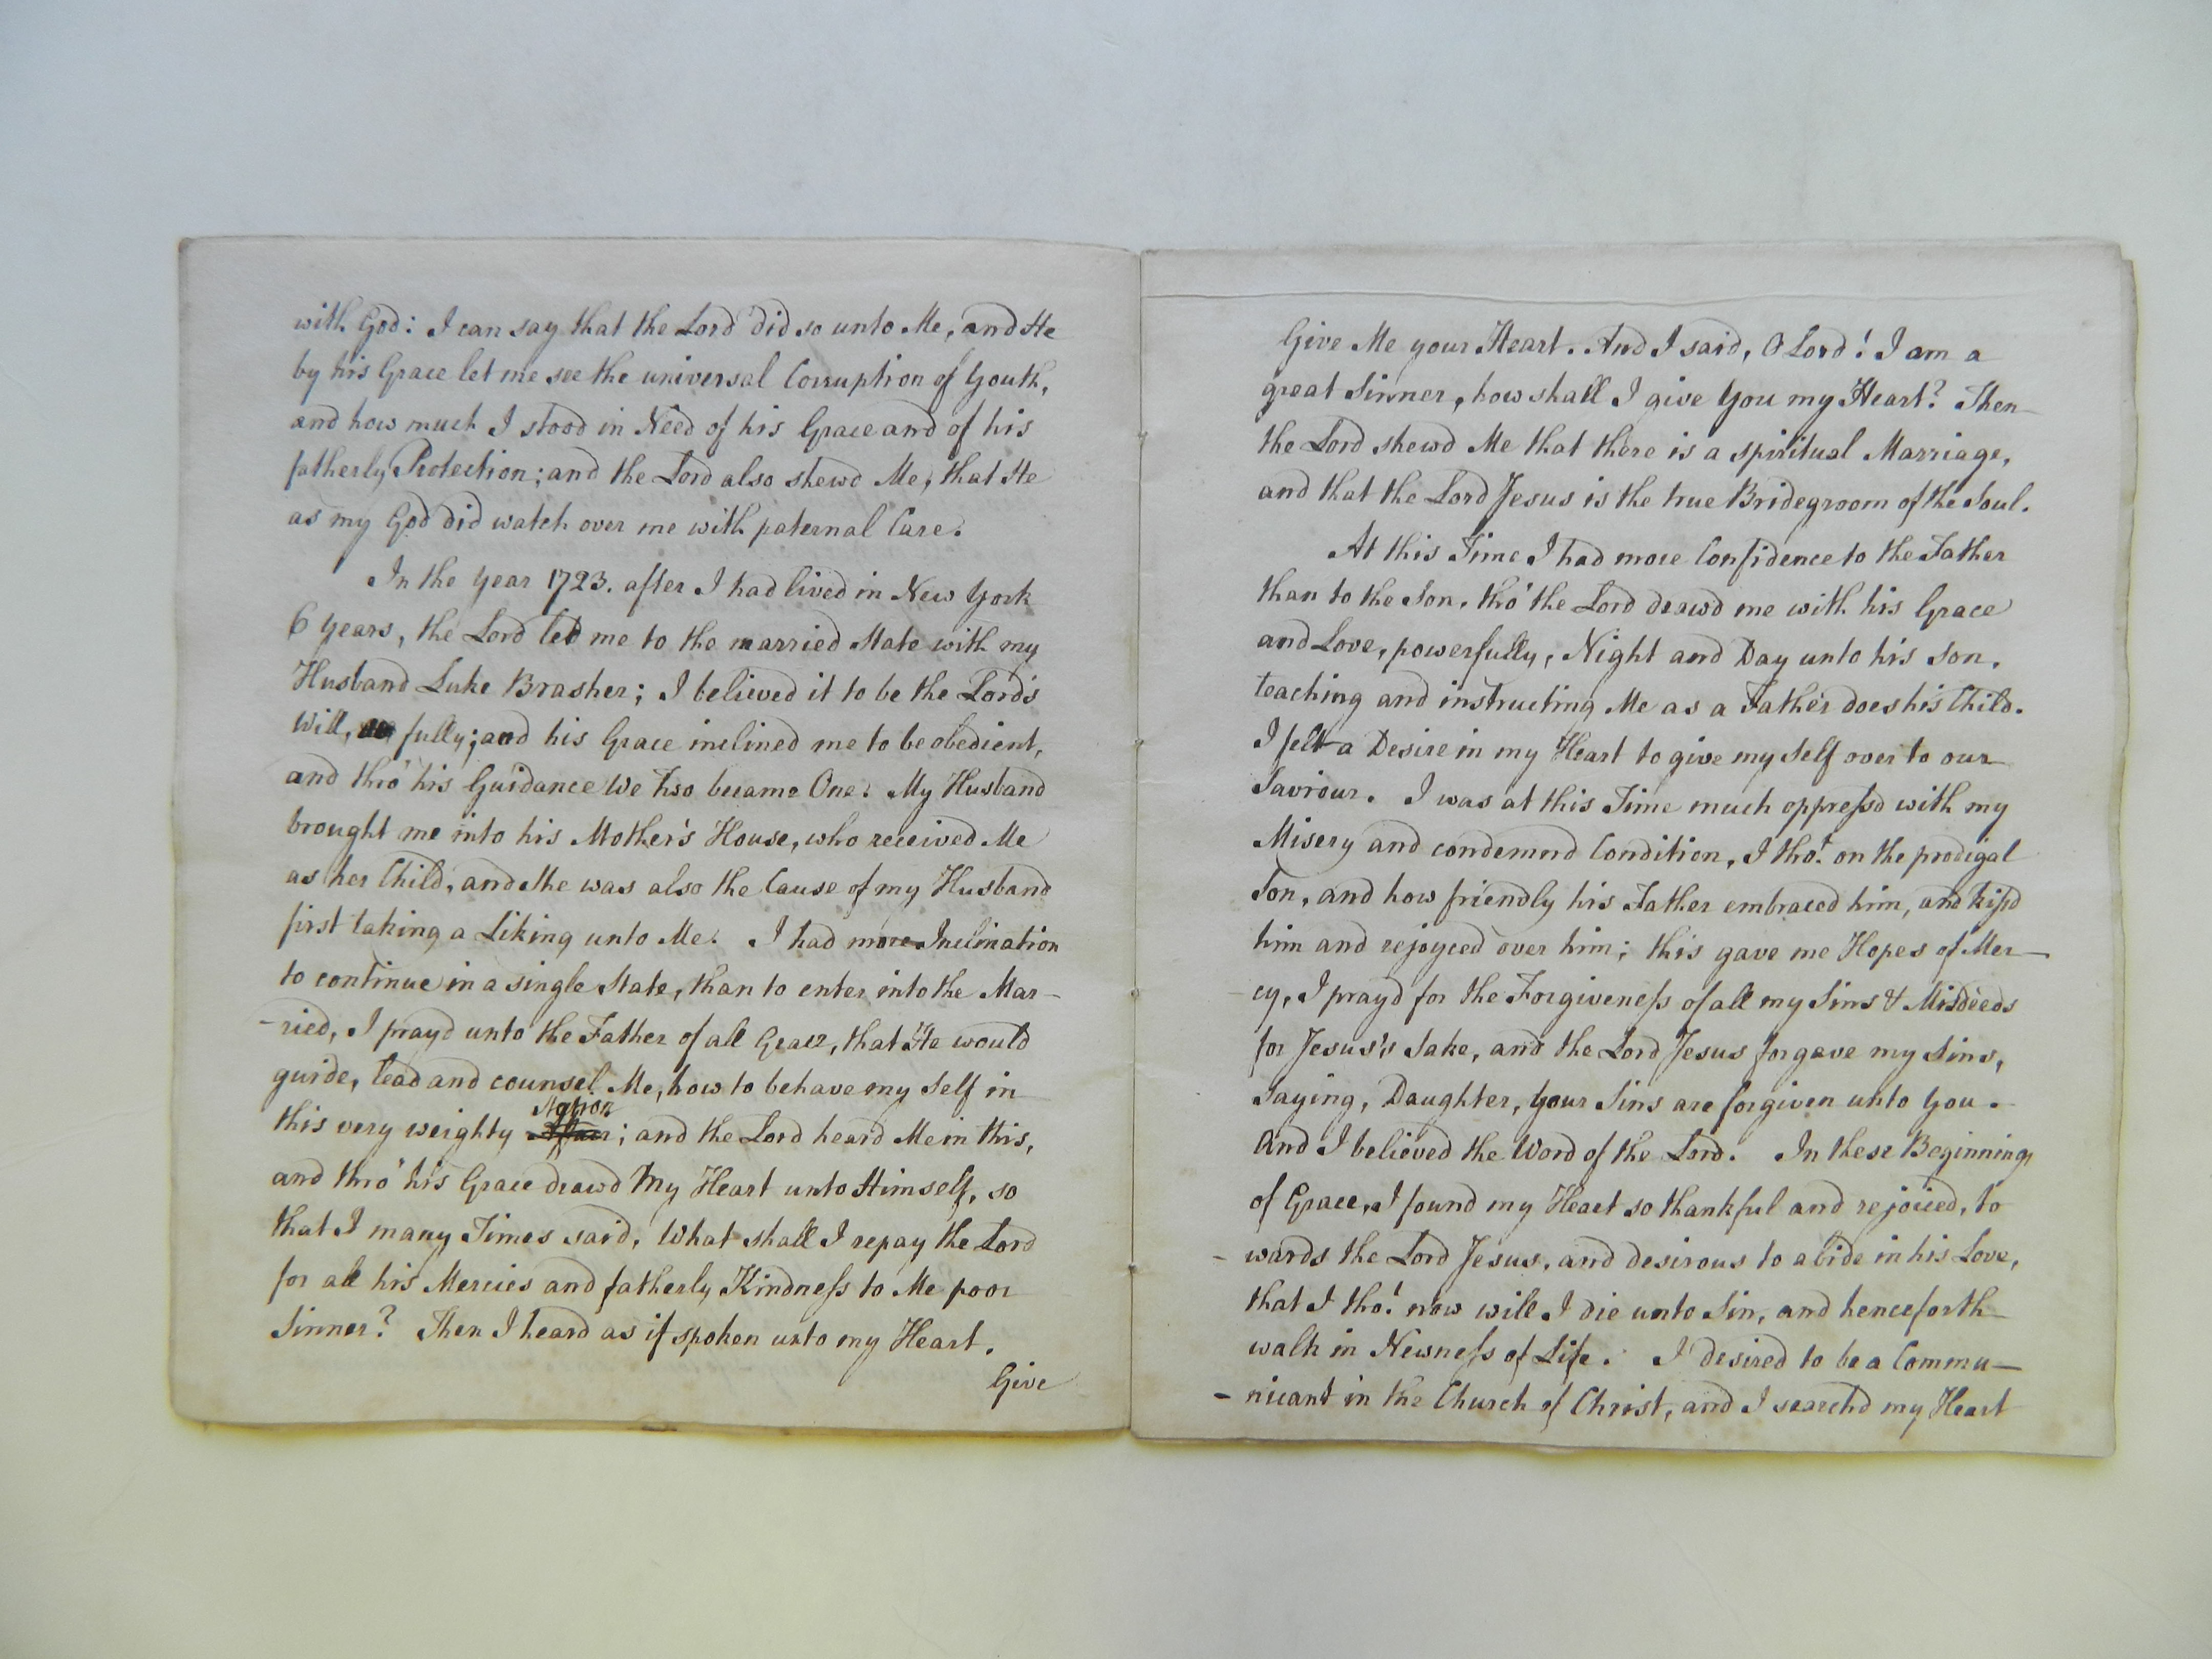 with God: I can say that the Lord did so unto Me, and He
by his Grace let me see the universal Corruption of Youth,
and how much I stood in Need of his Grace and of his
fatherly Protection; and the Lord also shewd Me, that He
as my God did watch over me with paternal Care.
In the Year 1723. after I had lived in New York
6 Years, the Lord led me to the married State with my
Husband Luke Brasher; I believed it to be the Lord's
Will, fully; and his Grace inclined me to be obedient,
and thro' his Guidance We Two became One. My Husband
brought me into his Mother's House, who received Me
as her Child, and She was also the Cause of my Husband
first taking a Liking unto Me. I had more Inclination
to continue in a single State, than to enter into the Mar-
-ried, I prayd unto the Father of all Grace, that He would
guide, lead and counsel Me, how to behave my Self in
Station
this very weighty Affair; and the Lord heard Me in this,
and thro' his Grace drawd My Heart unto Himself, so
that I many Times said, What shall I repay the Lord
for all his Mercies and fatherly Kindness to Me poor
Sinner? Then I heard as if spoken unto my Heart.
Give
Give Me your Heart. And I said, O Lord! I am a
great Sinner, how shall I give You my Heart? Then
the Lord shewd Me that there is a spiritual Marriage,
and that the Lord Jesus is the true Bridegroom of the Soul.
At this Time I had more Confidence to the Father
than to the Son. tho' the Lord drawd me with his Grace
and Love, powerfully, Night and Day unto his Son,
teaching and instructing Me as a Father does his Child.
I felt a Desire in my Heart to give my Self over to our
Saviour. I was at this Time much oppressd with my
Misery and condemnd Condition, I thot. on the prodigal
Son, and how friendly his Father embraced him, and kissd
him and rejoyced over him; this gave me Hopes of Mer-
-cy, I prayd for the Forgiveness of all my Sins & Misdeeds
for Jesus's Sake, and the Lord Jesus forgave my Sins,
Saying, Daughter, your Sins are forgiven unto You.
And I believed the Word of the Lord. In these Beginnings
of Grace, I found my Heart so thankful and rejoiced, to
-wards the Lord Jesus, and desirous to abide in his Love,
that I tho! now will I die unto Sin, and henceforth
walk in Newness of Life. I desired to be a Commu-
-nicant in the Church of Christ, and I searchd my Heart